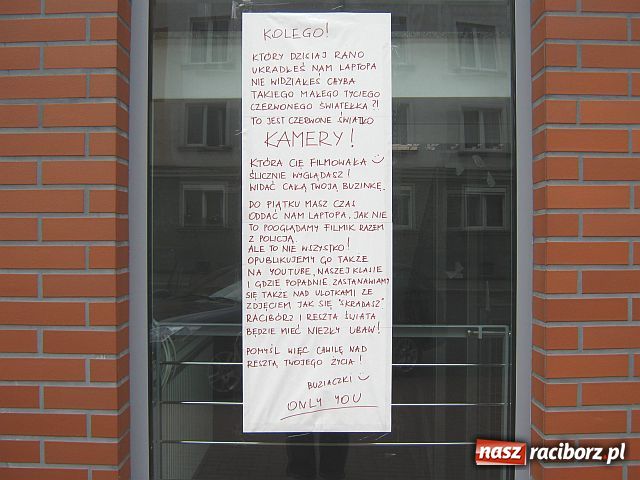 KOLEGO!
KTÓRY DZISIAJ RANO
UKRADŁEŚ NAM LAPTOPA
NIE WIDZIAŁEŚ CHYBA
TAKIEGO MAŁEGO TYCIEGO
CZERWONEGO ŚWIATEŁKA?!
TO JEST CZERWONE ŚWIATŁO
KAMERY!
KTÓRA CIĘ FILMOWAŁA
ŚLICZNIE WYGLĄDASZ!
WIDAĆ CAŁĄ TWOJĄ BUZINKĘ.
DO PIĄTKU MASZ CZAS
ODDAĆ NAM LAPTOPA, JAK NIE
TO POOGLĄDAMY FILMIK RAZEM
Z POLICJĄ.
ALE TO NIE WSZYSTKO!
OPUBLIKUJEMY GO TAKŻE
NA YOUTUBE, NASZEJ KLASIE
I GDZIE POPADNIE. ZASTANAWIAMY
SIĘ TAKŻE NAD ULOTKAMI ZE
ZDJĘCIEM JAK SIĘ "SKRADASZ"
RACIBÓRZ I RESZTA ŚWIATA
BĘDZIE MIEĆ NIEZŁY UBAW!
POMYŚL WIĘC CHWILĘ NAD
RESZTĄ TWOJEGO ŻYCIA!
BUZIACZKI
ONLY YOU
nasz raciborz.pl